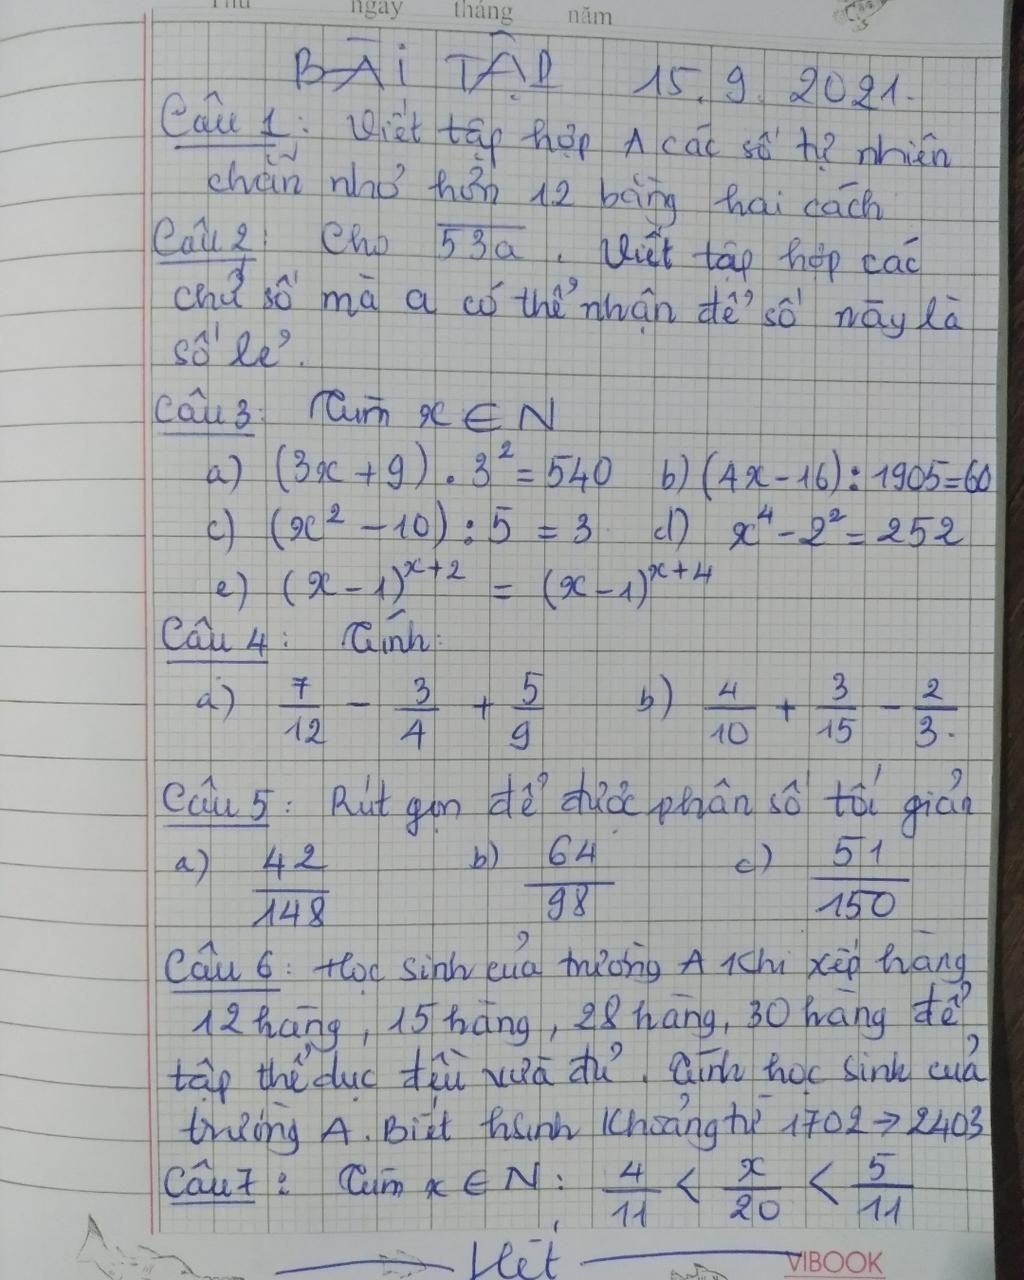 Thứ ngày tháng năm
BÀI TẬP 15.9.2021.
Câu 1: Viết tập hợp A các số tự nhiên
chẵn nhỏ hơn 12 bằng hai cách
Câu 2: Cho \overline{53a}. Viết tập hợp các
chữ số mà a có thể nhận để số này là
số lẻ.
Câu 3: Tìm x ∈ N
a) (3x + 9) . 3² = 540 b) (4x - 16) : 1905 = 60
c) (x² - 10) : 5 = 3 d) x⁴ - 2² = 252
e) (x - 1)^{x+2} = (x - 1)^{x+4}
Câu 4: Tính:
a) 7/12 - 3/4 + 5/9 b) 4/10 + 3/15 - 2/3.
Câu 5: Rút gọn để được phân số tối giản
a) 42/148 b) 64/98 c) 51/150
Câu 6: Học sinh của trường A khi xếp hàng
12 hàng, 15 hàng, 28 hàng, 30 hàng để
tập thể dục đều vừa đủ. Tính học sinh của
trường A. Biết hsinh khoảng từ 1702 → 2403
Câu 7: Tìm x ∈ N: 4/11 < x/20 < 5/11
Hết
VIBOOK